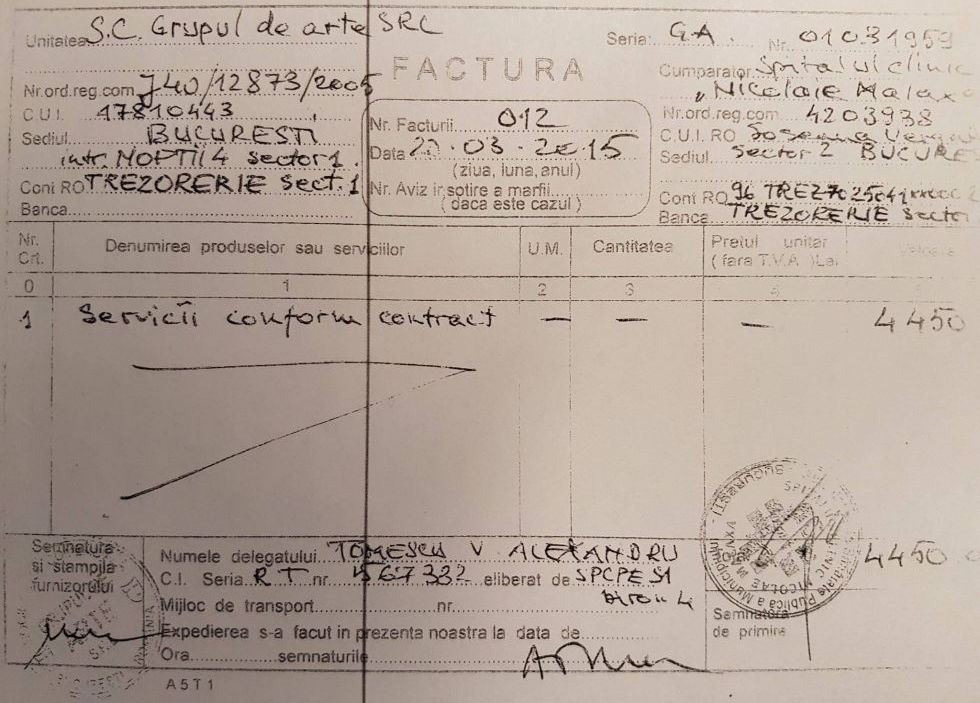 Unitatea S.C. Grupul de arte SRL
Seria: G.A. Nr. 01031959
FACTURA
Cumparator Spitalul clinic
"Nicolaie Malax
Nr.ord.reg.com. J40/12873/2005
Nr.ord.reg.com. 4203938
C U I. 17810443
C.U.I. RO Soseaua
Sediul BUCURESTI
Sediul. sector 2 BUCURE
intr. NOPTII 4 sector 1.
Cont RO TREZORERIE Sect. 1
Cont RO 96 TREZ
Banca
Banca TREZORERIE Sector
Nr. Facturii 012
Data .03.2015
(ziua, luna, anul)
Nr. Aviz insotire a marfii
( daca este cazul )
Nr. Crt. Denumirea produselor sau serviciilor U.M. Cantitatea Pretul unitar (fara T.V.A. )Lei
0 1 2 3 4
1 Servicii conform contract — — — 4450
Semnatura
si stampila
furnizorului
Numele delegatului TOMESCU V ALEXANDRU
C.I. Seria RT nr 567332 eliberat de SPCPE S1
birou 4
4450
Mijloc de transport nr.
Expedierea s-a facut in prezenta noastra la data de
Ora semnaturile
Semnatura
de primire
A5T1